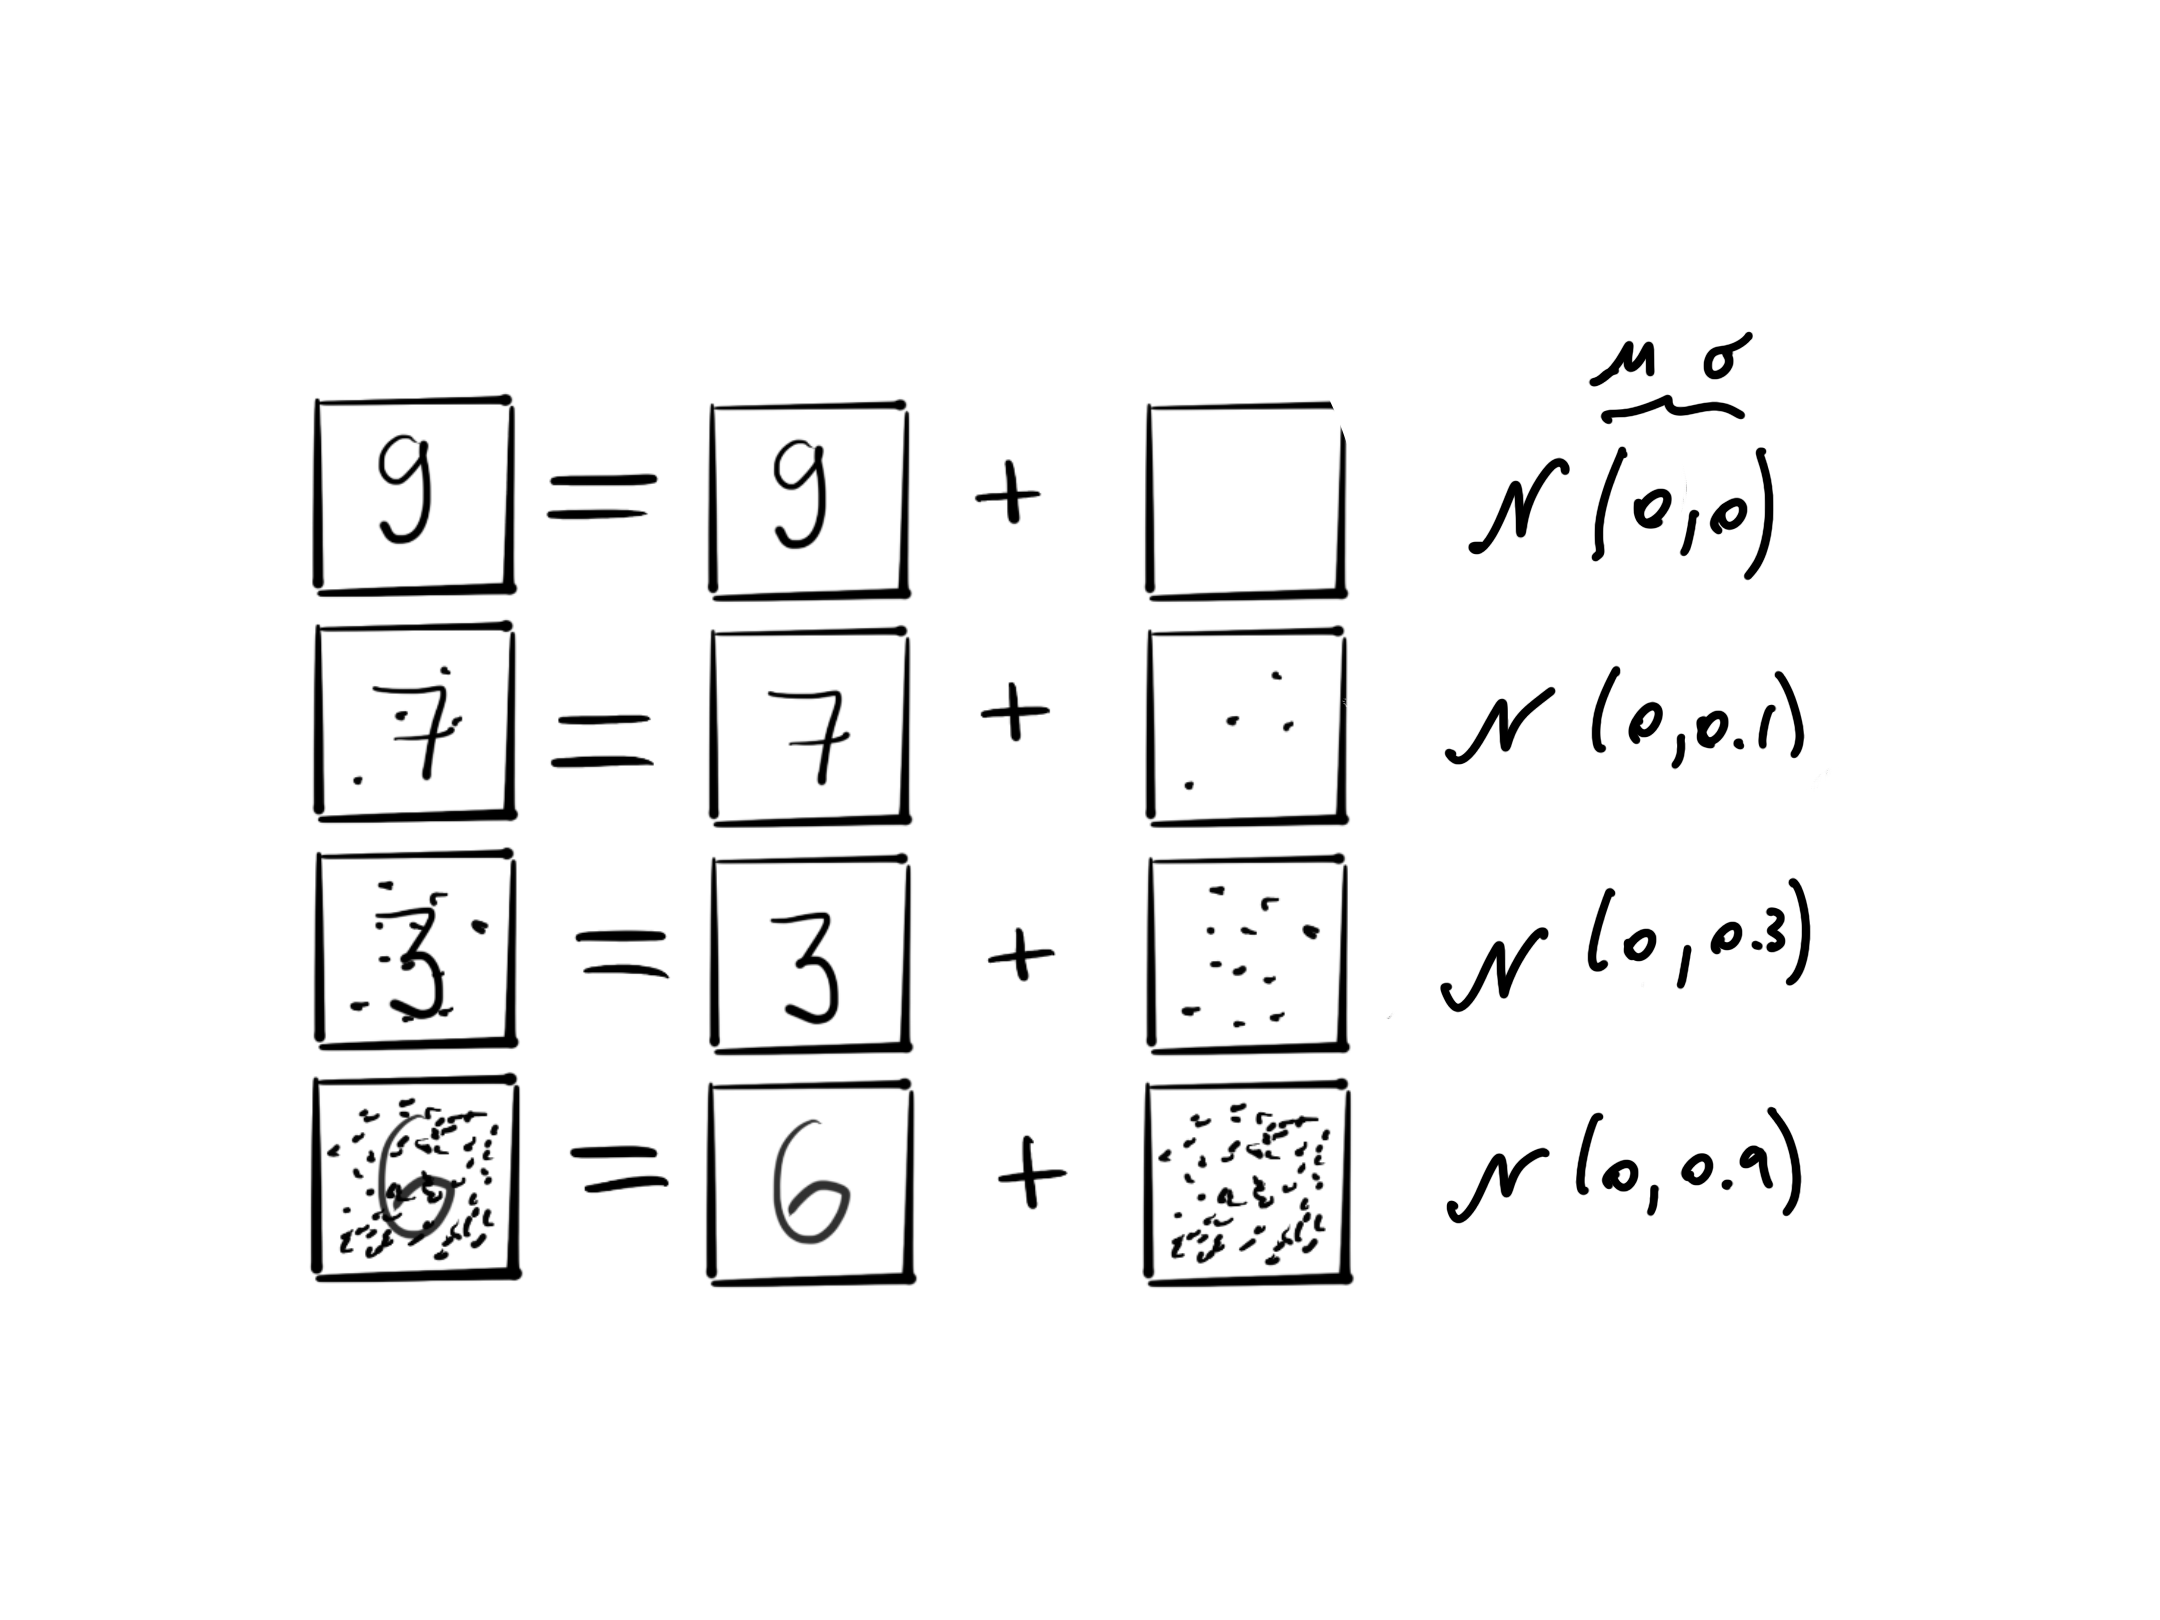 μ σ
9 = 9 + 𝒩 (0,0)
7 = 7 + 𝒩 (0,0.1)
3 = 3 + 𝒩 (0,0.3)
6 = 6 + 𝒩 (0,0.9)